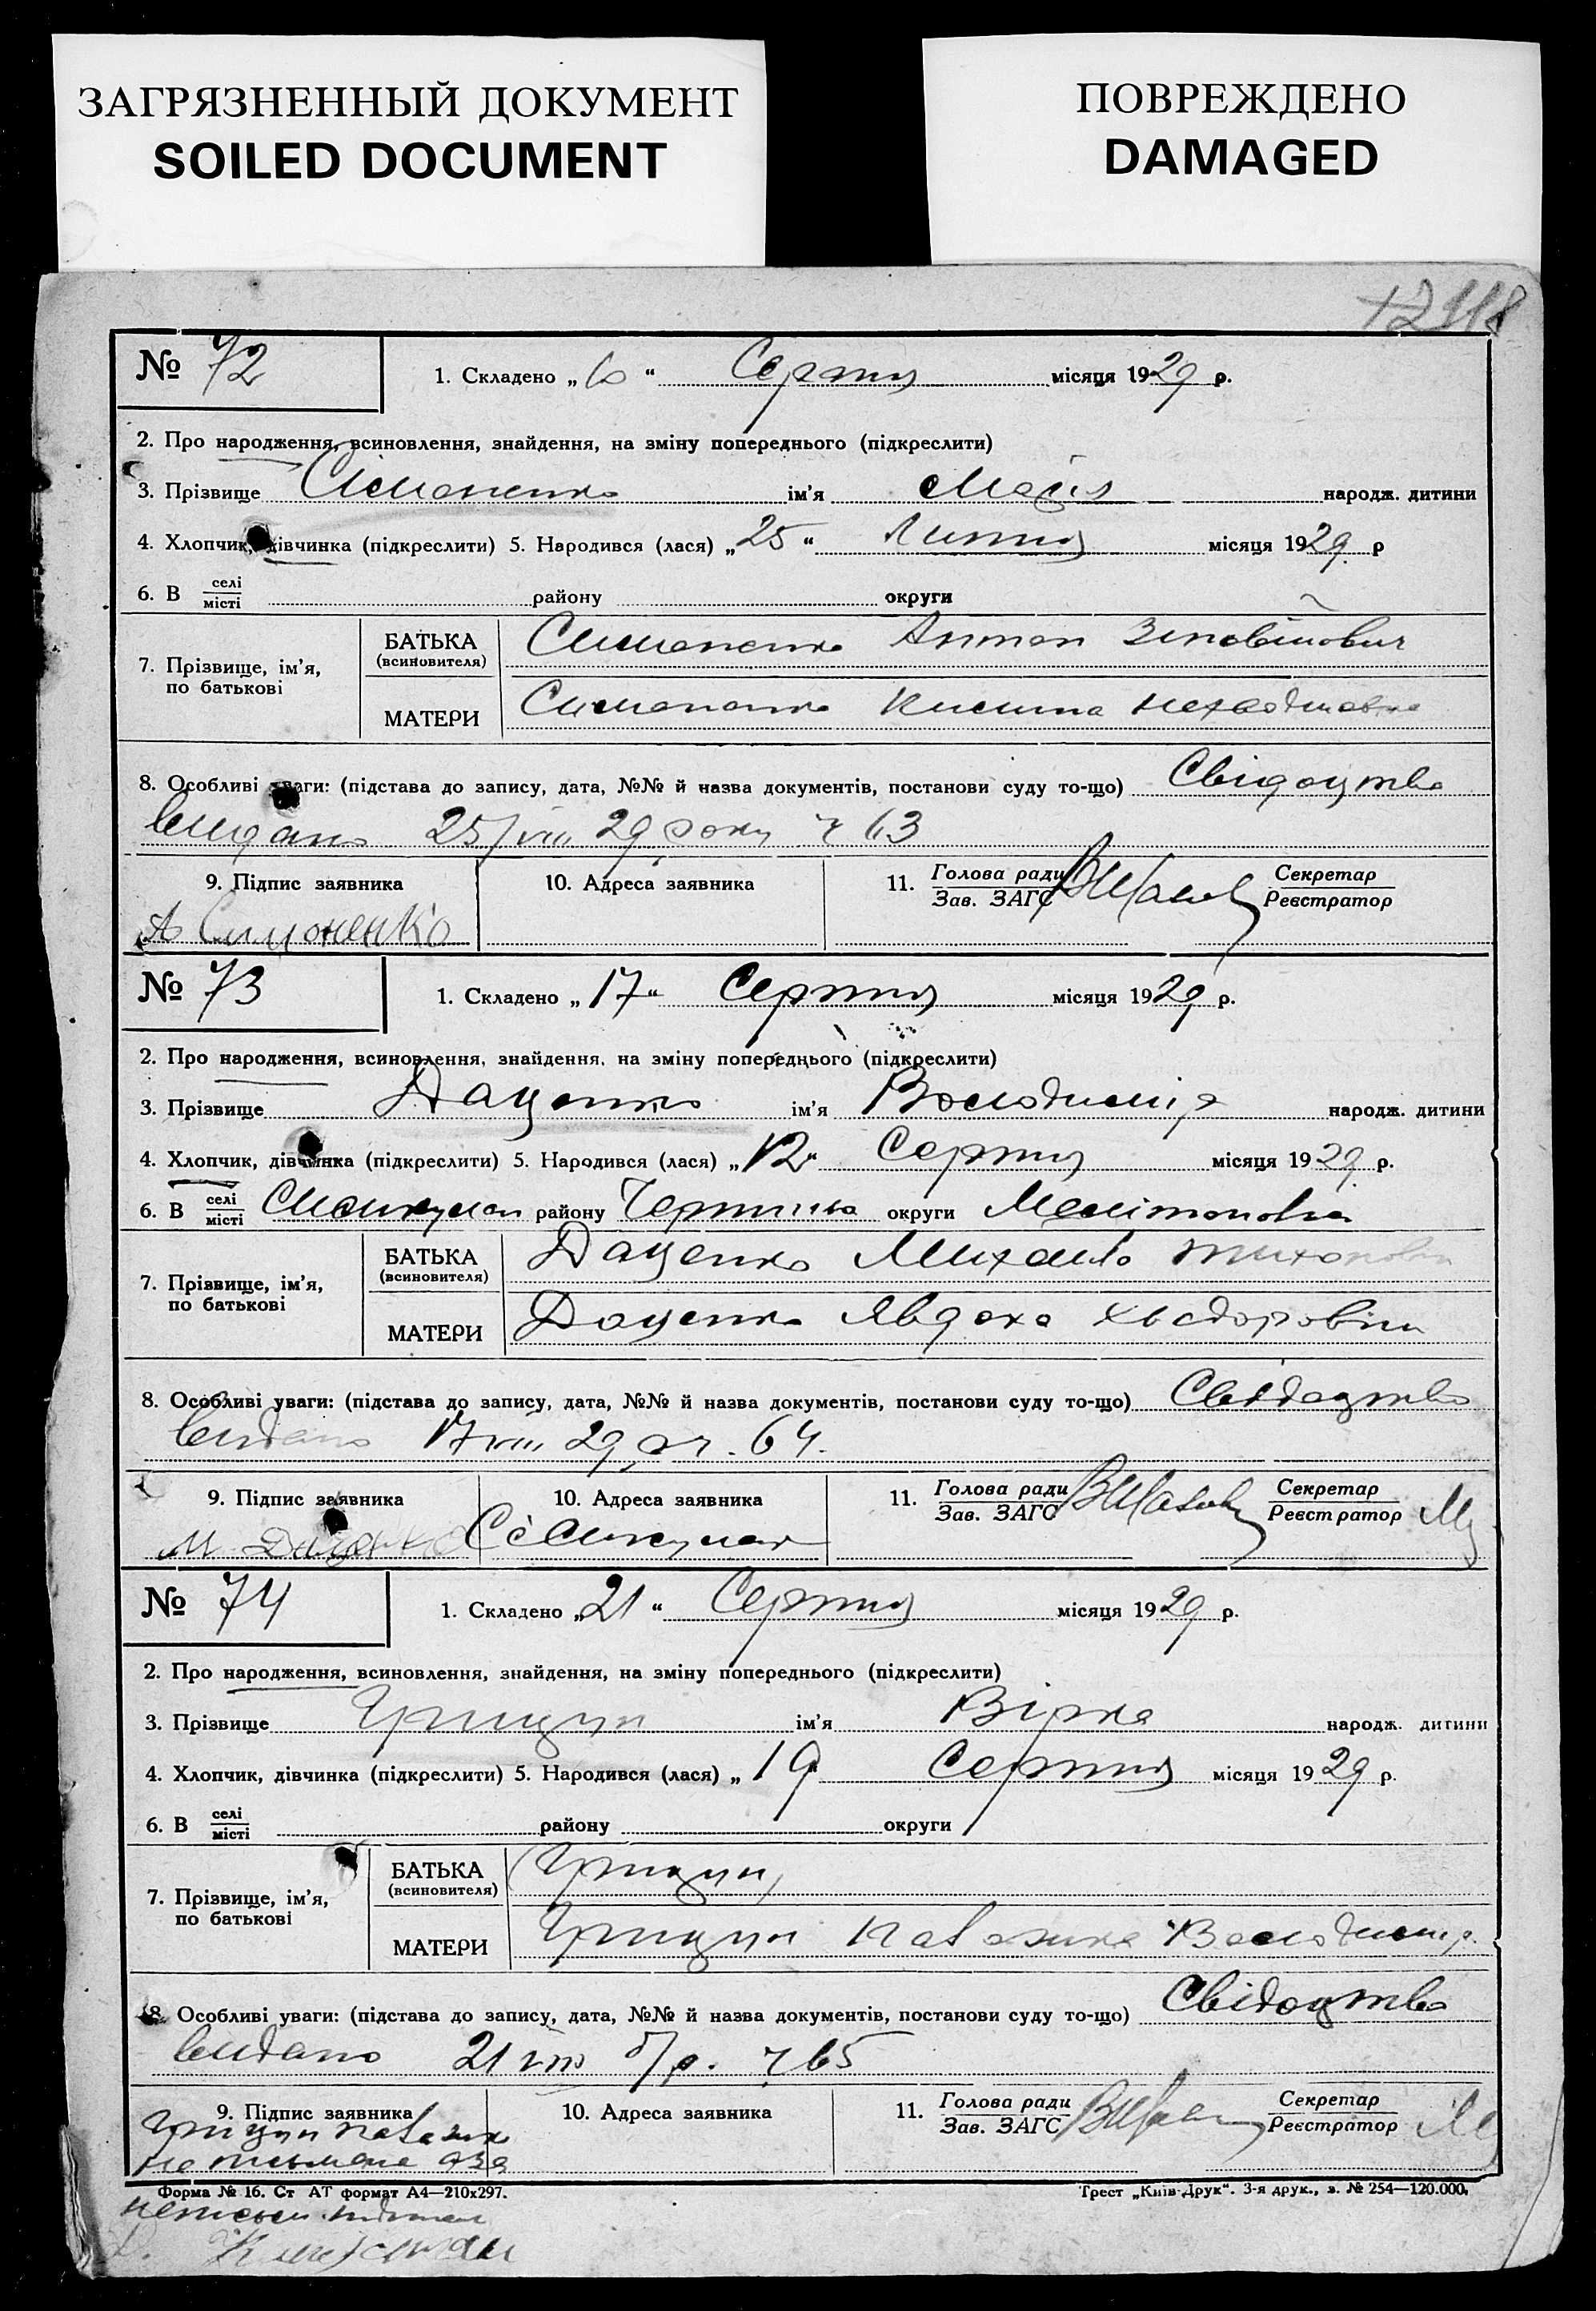 ЗАГРЯЗНЕННЫЙ ДОКУМЕНТ
SOILED DOCUMENT
ПОВРЕЖДЕНО
DAMAGED
№ 72
1. Складено „ “ Серпня місяця 1929 р.
2. Про народження, всиновлення, знайдення, на зміну попереднього (підкреслити)
3. Прізвище Сімоненко ім'я Марія народж. дитини
4. Хлопчик, дівчинка (підкреслити) 5. Народився (лася) „25“ Липня місяця 1929 р
6. В селі/місті району округи
7. Прізвище, ім'я, по батькові
БАТЬКА (всиновителя) Симоненко Антон Зіновійович
МАТЕРИ Симоненко
8. Особливі уваги: (підстава до запису, дата, №№ й назва документів, постанови суду то-що) Свідоцтво
видано 25/VIII 29 року ч 63
9. Підпис заявника
10. Адреса заявника
11. Голова ради/Зав. ЗАГС
Секретар/Реєстратор
А Симоненко
№ 73
1. Складено „17“ Серпня місяця 1929 р.
2. Про народження, всиновлення, знайдення, на зміну попереднього (підкреслити)
3. Прізвище Даценко ім'я Володимир народж. дитини
4. Хлопчик, дівчинка (підкреслити) 5. Народився (лася) „12“ Серпня місяця 1929 р.
6. В селі/місті району округи Мелітопольск
7. Прізвище, ім'я, по батькові
БАТЬКА (всиновителя) Даценко Михайло Тихонович
МАТЕРИ Даценко Явдоха Хведоровна
8. Особливі уваги: (підстава до запису, дата, №№ й назва документів, постанови суду то-що) Свідоцтво
видано 17 VIII 29 р ч. 64.
9. Підпис заявника
10. Адреса заявника
11. Голова ради/Зав. ЗАГС
Секретар/Реєстратор
М Даценко
№ 74
1. Складено „21“ Серпня місяця 1929 р.
2. Про народження, всиновлення, знайдення, на зміну попереднього (підкреслити)
3. Прізвище Грицун ім'я Вірка народж. дитини
4. Хлопчик, дівчинка (підкреслити) 5. Народився (лася) „19 Серпня місяця 1929 р.
6. В селі/місті району округи
7. Прізвище, ім'я, по батькові
БАТЬКА (всиновителя) Грицун
МАТЕРИ Грицун Володимир.
8. Особливі уваги: (підстава до запису, дата, №№ й назва документів, постанови суду то-що) Свідоцтво
видано 21 VIII б/р. ч 65
9. Підпис заявника
10. Адреса заявника
11. Голова ради/Зав. ЗАГС
Секретар/Реєстратор
Грицун
Форма № 16. Ст АТ формат А4—210x297.
Трест „Київ-Друк“. 3-я друк., з. № 254—120.000.